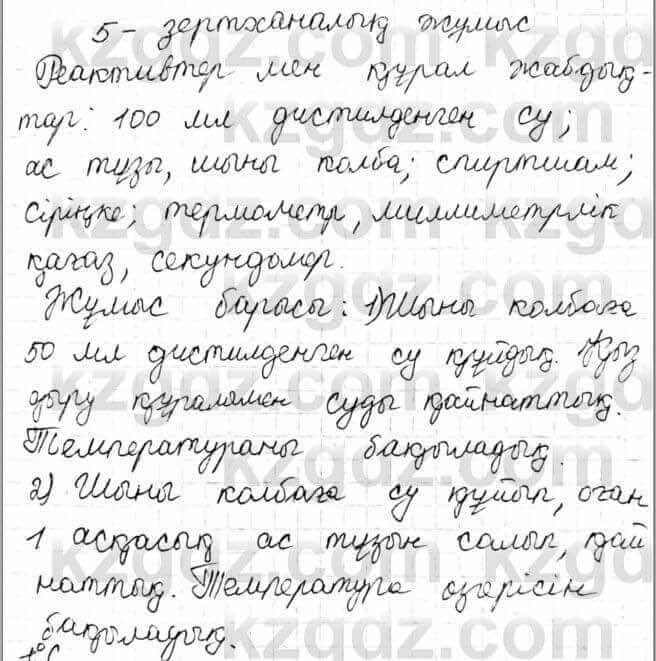 5 - зертханалық жұмыс
Реактивтер мен құрал жабдық-
тар: 100 мл дистилденген су;
ас тұзы, шыны колба; спиртшам;
сіріңке; термометр, миллиметрлік
қағаз, секундомер.
Жұмыс барысы: 1) Шыны колбаға
50 мл дистилденген су құйдық. Қыз
дыру құралымен суды қайнаттық.
Температураны бақыладық.
2) Шыны колбаға су құйып, оған
1 асқасық ас тұзын салып, қай
наттық. Температура өзгерісін
бақыладық.
t°C
kzgdz.com